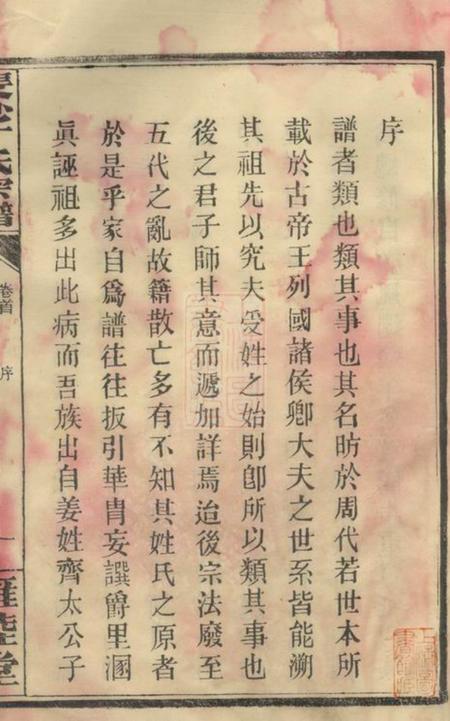 序
譜者類也類其事也其名昉於周代若世本所
載於古帝王列國諸侯卿大夫之世系皆能溯
其祖先以究夫受姓之始則卽所以類其事也
後之君子師其意而遞加詳焉迨後宗法廢至
五代之亂故籍散亡多有不知其姓氏之原者
於是乎家自爲譜往往扳引華胄妄譔爵里溷
眞誣祖多出此病而吾族出自姜姓齊太公子
氏宗譜
卷首
序
一
堂